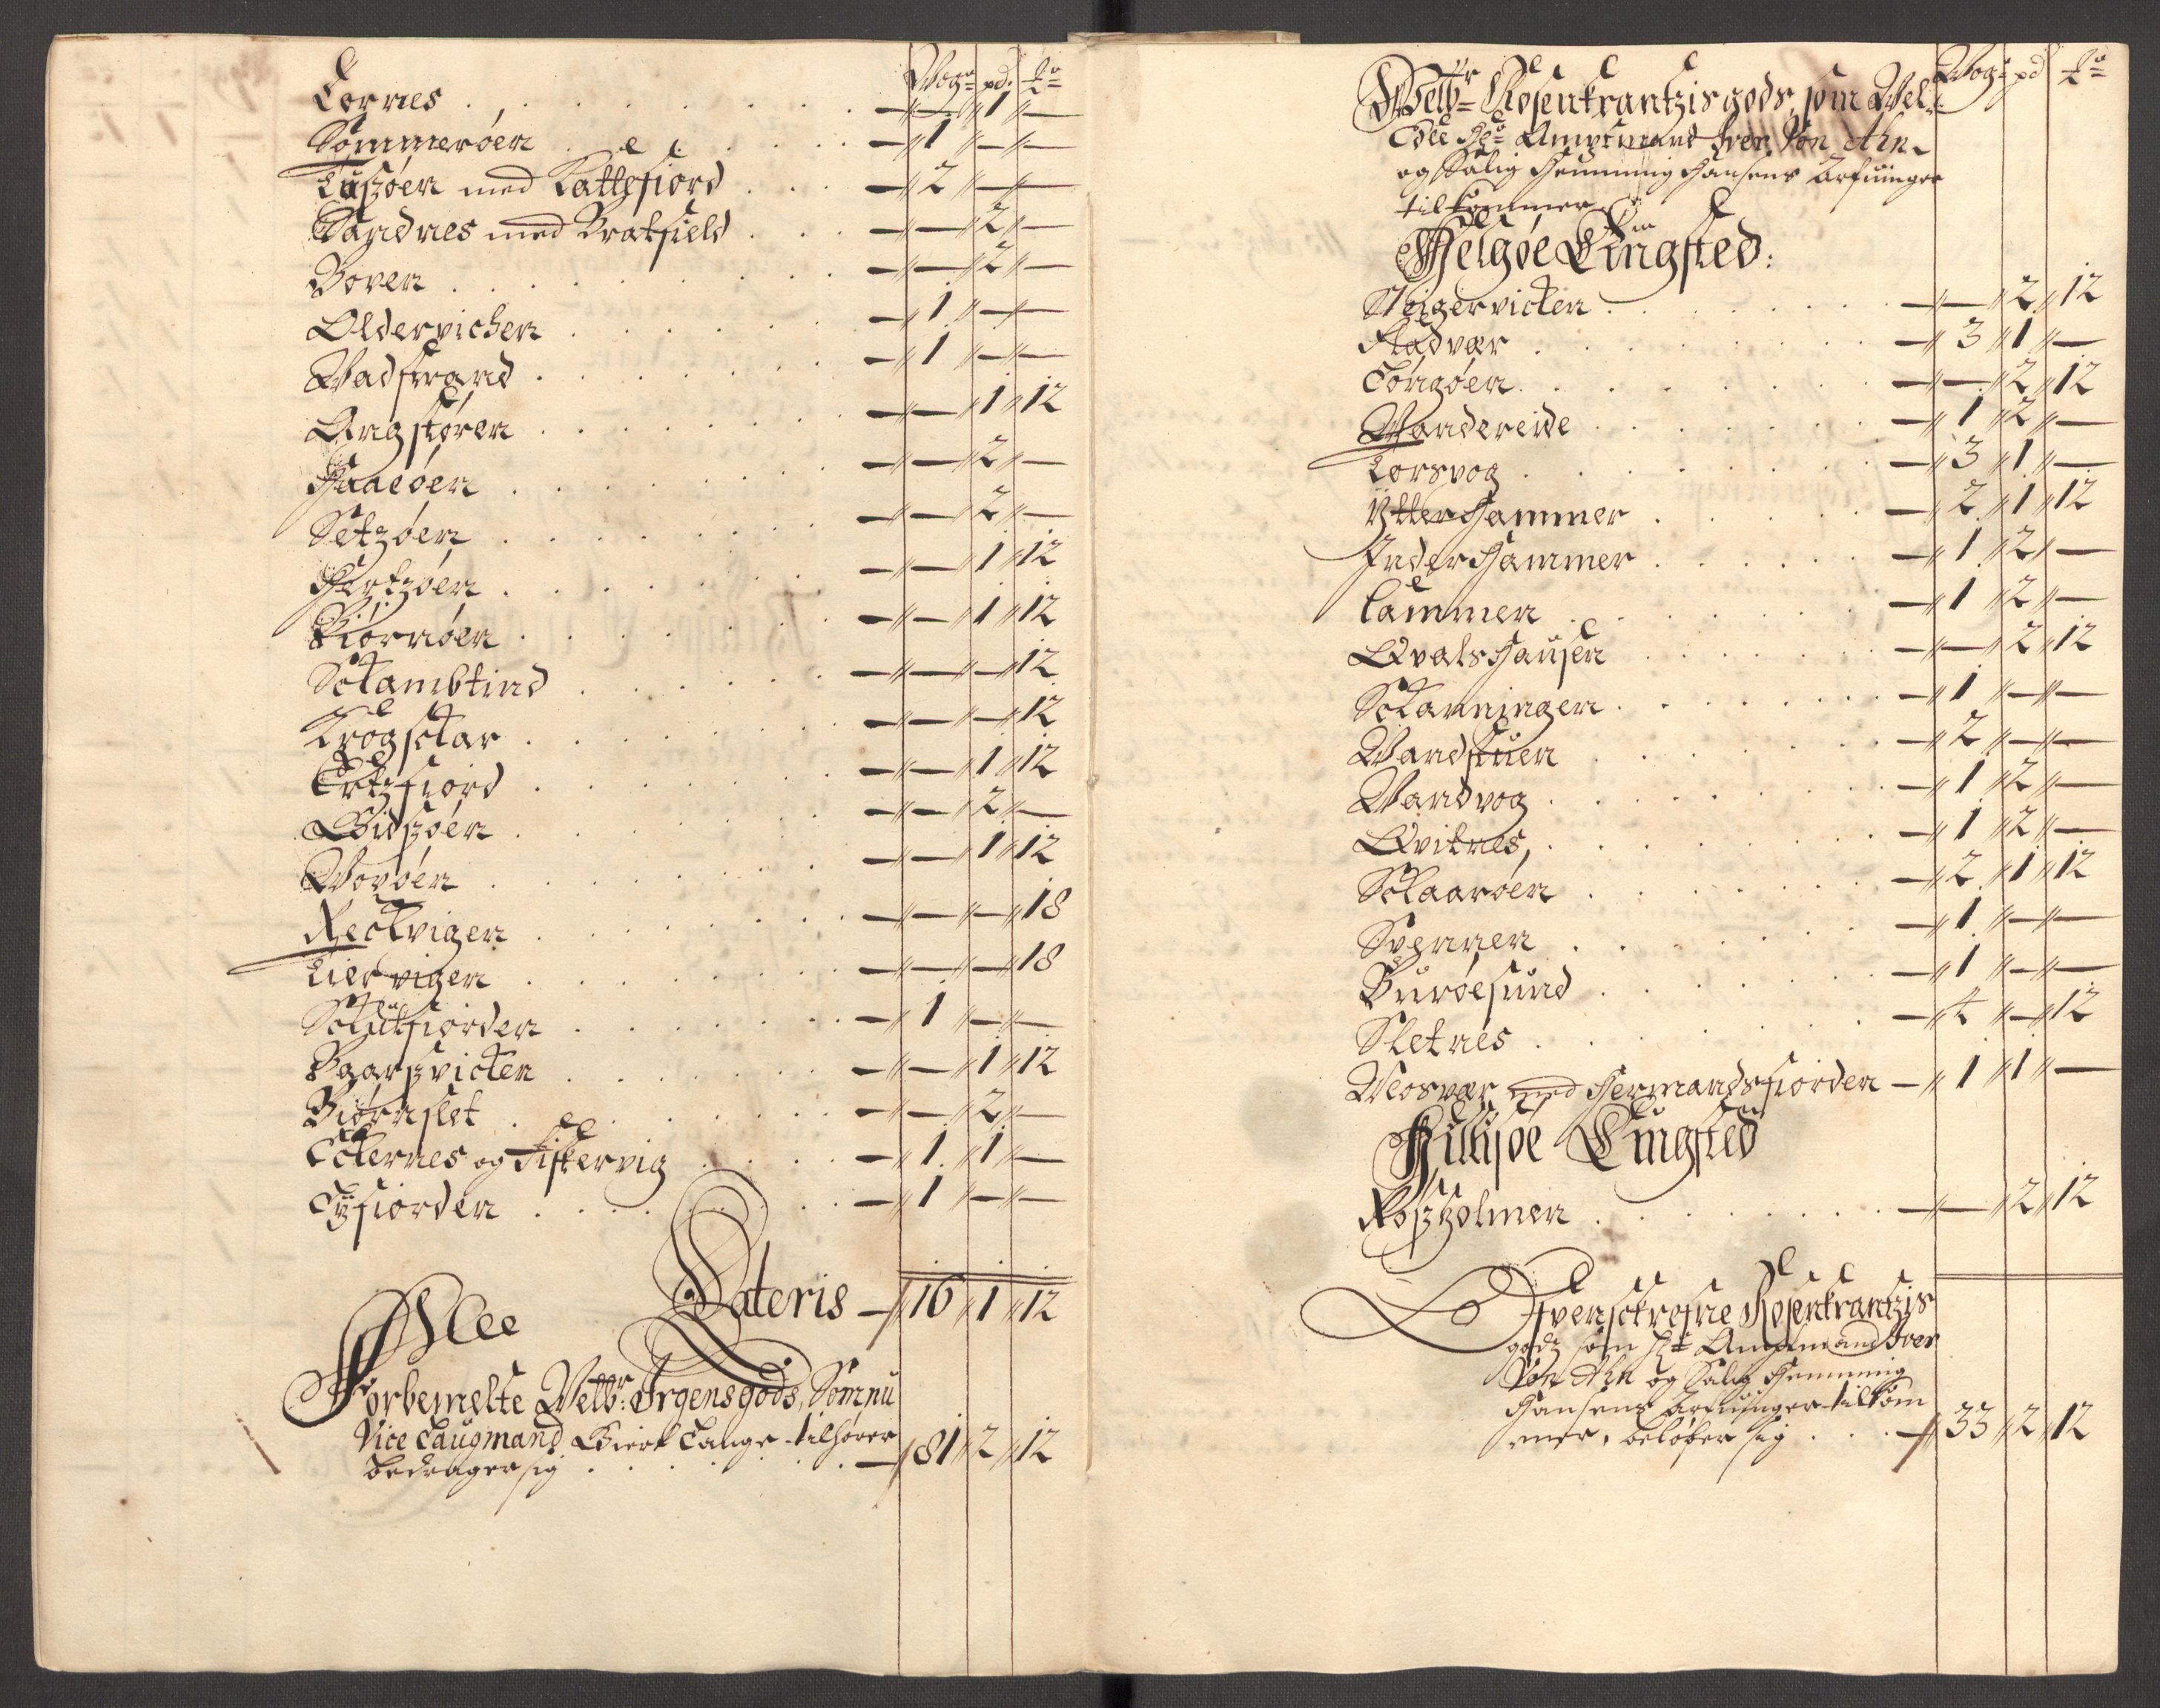 Wog pd
Tornes . . . . . . — // — // 1 // —
Sommeröen . . . — // 1 // — // —
Tußöen med Kattfiord . . — // 2 // — // —
Sandnes med Bratfield . . . — // — // 2 // —
Boven . . . . . . — // — // 2 // —
Oldervichen . . . . . — // 1 // — // —
Vadstrand . . . . . — // 1 // — // —
Angstören . . . . . — // — // 1 // 12
Haaeöen . . . . . — // — // 2 // —
Setzöen . . . . . — // — // 2 // —
Hertzöen . . . . . — // — // 1 // 12
Biörnöen . . . . . — // — // 1 // 12
Skambtind . . . . . — // — // — // 12
Krogsktar . . . . . — // — // — // 12
Ertzfiord . . . . . — // — // 1 // 12
Gidßöen . . . . . — // — // 2 // —
Wovöen . . . . . — // — // 1 // 12
Rekvigen . . . . . — // — // — // 18
Liervigen . . . . . — // — // — // 18
Skulfiorden . . . . . — // 1 // — // —
Baarßvicken . . . . . — // — // 1 // 12
Biörnslet . . . . . — // — // 2 // —
Eckernes og Fiskervig . . . — // 1 // 1 // —
Tyfiorden . . . . . — // 1 // — // —
Lateris — // 16 // 1 // 12
Alle
Forbemelte Velb: Irgens gods, Som nu
Vice Laugmand Giert Lange tilhører
bedrager sig . . . . . — // 81 // 2 // 12
Wog pd
Welb: Rosenkrantzis gods, som Vel-
Edle Hr Amptmand Iver Von Ahn
og Salig Hemming Hansens Arfuinger
tilkommer
Helgøe Tingsted:
Skeigervicken . . . . — // — // 2 // 12
Fladvær . . . . . — // 3 // 1 // —
Töngöen . . . . . — // — // 2 // 12
Wandereide . . . . . — // 1 // 2 // —
Korsvog . . . . . — // 3 // 1 // —
Ytterhammer . . . . . — // 2 // 1 // 12
Inderhammer . . . . . — // 1 // 2 // —
Lammen . . . . . — // 1 // 2 // —
Qvalshausen . . . . . — // — // 2 // 12
Skanningen . . . . . — // 1 // — // —
Wandstuen . . . . . — // 2 // — // —
Wandvog . . . . . — // 1 // 2 // —
Qvitnes, . . . . . — // 1 // 2 // —
Skaaröen . . . . . — // 2 // 1 // 12
Svennen . . . . . — // 1 // — // —
Buröesund . . . . . — // 1 // — // —
Sletnes . . . . . — // 4 // — // 12
Mosvær med Hermandsfiorden — // 1 // 1 // —
Hillisøe Tingsted
Roßholmen . . . . . — // — // 2 // 12
Ofverskrefne Rosenkrantzis
godz som Hr Amptmand Iver
Von Ahn og Salig Hemming
Hansens Arfuinger tilkom
mer, beløber sig . . . — // 33 // 2 // 12